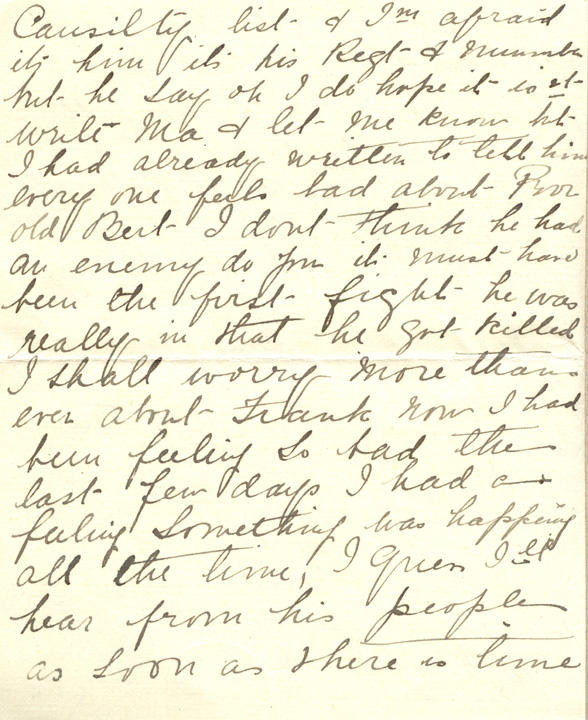 Causilty list & I'm afraid
its him its his Regt & number
but he say oh I do hope it isnt
write Ma & let me know bt
I had already written to tell him
every one feels bad about Poor
old Bert I dont think he had
an enemy do you it must have
been the first fight he was
really in that he got killed
I shall worry more than
ever about Frank now I had
been feeling so bad the
last few days I had a
feeling something was happening
all the time, I guess I'll
hear from his people
as soon as there is time